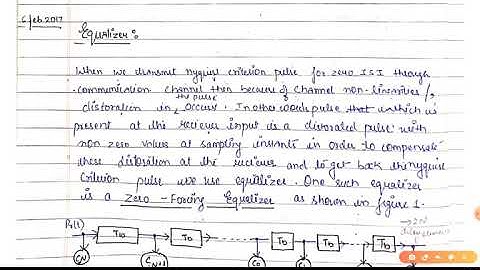 6 feb 2017
Equalizer :
When we transmit nyquist criterion pulse for zero ISI through
communication channel then because of channel non-linearities /
the pulse
distoration in, occurs. In other words pulse that which is
present at the reciever input is a distorated pulse with
non zero values at sampling instants in order to compensate
these distoration at the reciever and to get back the nyquist
criterion pulse we use equalizer. One such equalizer
is a Zero-Forcing Equalizer as shown in figure 1.
→ 2N
Pr(t) Tb Tb Tb Tb Tb
C-N C-N+1 C0 C1